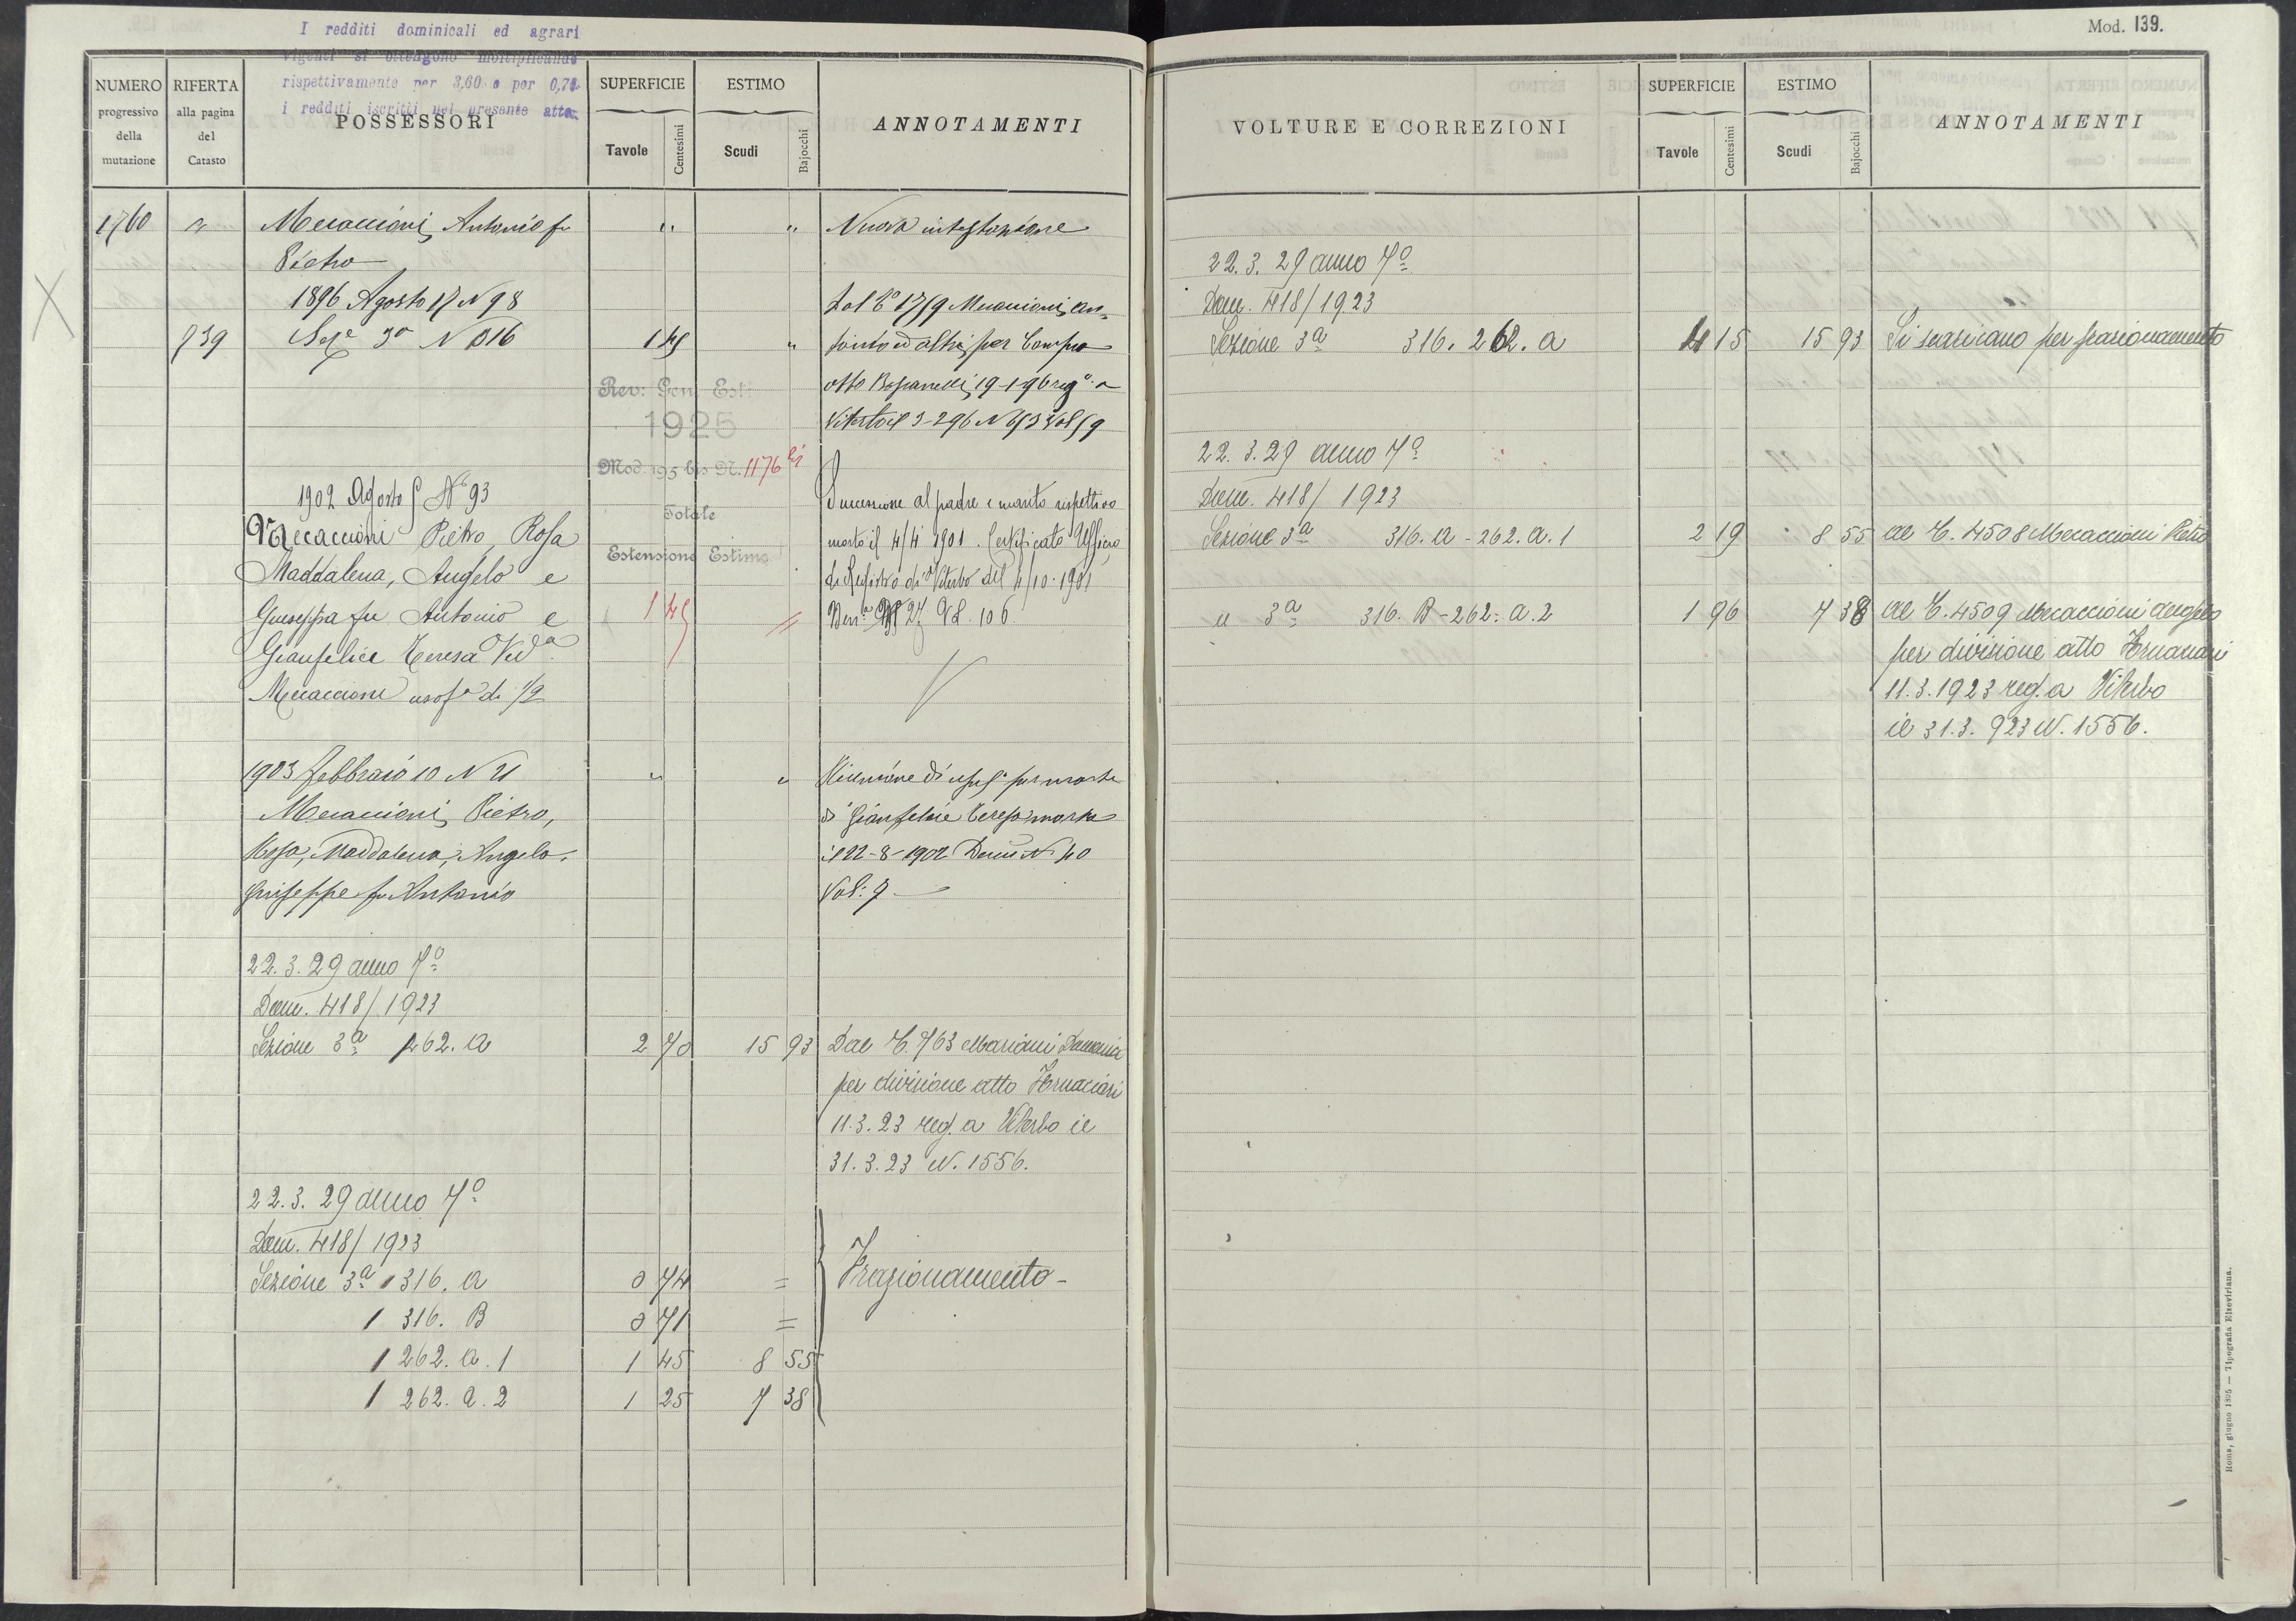 I redditi dominicali ed agrari
vigenti si ottengono moltiplicando
rispettivamente per 3,60 e per 0,70
i redditi iscritti nel presente atto.
NUMERO
progressivo
della
mutazione
RIFERTA
alla pagina
del
Catasto
POSSESSORI
SUPERFICIE
Tavole
Centesimi
ESTIMO
Scudi
Bajocchi
ANNOTAMENTI
1760 Mecaccioni Antonio fu " " Nuova intestazione
Pietro
1896 Agosto 17 N 98
Dal Co 1759 Mecaccioni An-
939 Sege 3a N 316 1 45 "
tonio ed altri per Compra
atto 19-1-96 reg° a
Viterbo il 3-2-96
Rev: Gen. Esti
1925
Mod. 195 bis N. 1176 bis
Totale
Estensione Estimo
1 45 =
1902 Agosto 5 N° 93
Mecaccioni Pietro, Rosa
Maddalena, Angelo e
Giuseppa fu Antonio e
Gianfelice Teresa Veda
Mecaccioni usofa di 1/2
Successione al padre e marito rispettivo
morto il 4/4 1901. Certificato Ufficio
di Registro di Viterbo del 4/10-1901
Den.a 27 Vol. 106
1903 febbraio 10 N 21 " "
Mecaccioni Pietro,
Rosa, Maddalena, Angelo,
Giuseppe fu Antonio
Riunione di usuf° per morte
di Gianfelice Teresa morta
il 22-8-1902 Den: N 40
Vol: 9
22.3.29 anno 7°
Dom. 418/1923
Sezione 3a 262. a 2 70 15 93 Dal C. 763 Mariani Domenica
per divisione atto Fornaciari
11.3.23 reg. a Viterbo il
31.3.23 N. 1556.
22.3.29 anno 7°
Dom. 418/1923
Sezione 3a 1 316. a 0 74 = Frazionamento -
1 316. B 0 71 =
1 262. a. 1 1 45 8 55
1 262. a. 2 1 25 7 38
Mod. 139.
VOLTURE E CORREZIONI
SUPERFICIE
Tavole
Centesimi
ESTIMO
Scudi
Bajocchi
ANNOTAMENTI
22.3.29 anno 7°
Dom. 418/1923
Sezione 3a 316. 262. a 4 15 15 93 Si scaricano per frazionamento
22.3.29 anno 7°
Dom. 418/1923
Sezione 3a 316. a - 262. a. 1 2 19 8 55 al C. 4508 Mecaccioni Pietro
" 3a 316. B - 262. a. 2 1 96 7 38 al C. 4509 Mecaccioni Angelo
per divisione atto Fornaciari
11.3.1923 reg. a Viterbo
il 31.3.923 N. 1556.
Roma, giugno 1895 — Tipografia Elzeviriana.